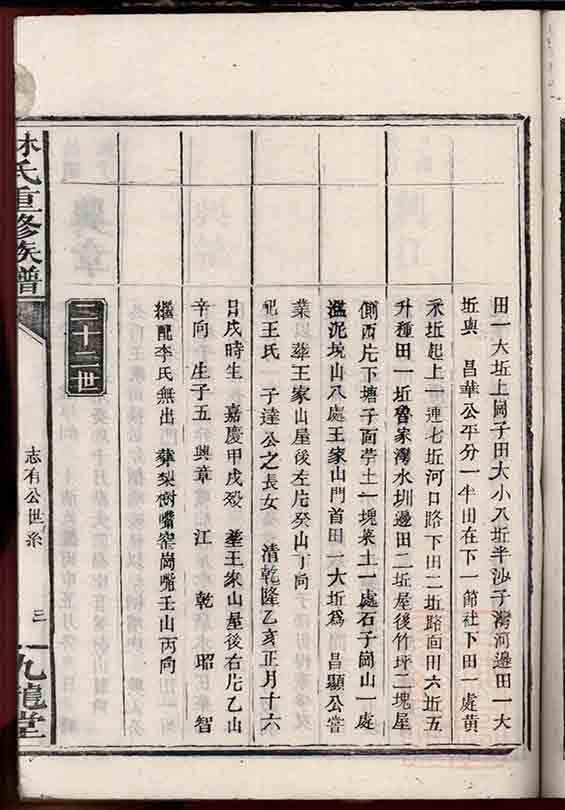 田一大坵上崗子田大小八坵半沙子灣河邊田一大
坵與 昌華公平分一半田在下一節社下田一處黃
禾坵起上一連七坵河口路下田二坵路面田六坵五
升種田一坵魯家灣水圳邊田二坵屋後竹坪二塊屋
側西片下塘子面荸土一塊菜土一處石子崗山一處
濫泥坡山八處王家山門首田一大坵爲 昌顯公嘗
業 葬王家山屋後左片癸山丁向
配王氏 子達公之長女 清乾隆乙亥正月十六
日戌時生 嘉慶甲戌歿 葬王家山屋後右片乙山
辛向 生子五 興章 江 乾 昭 智
繼配李氏無出 葬梨樹嘴窑崗嘴壬山丙向
二十二世
林氏重修族譜
志有公世系
三
九龍堂